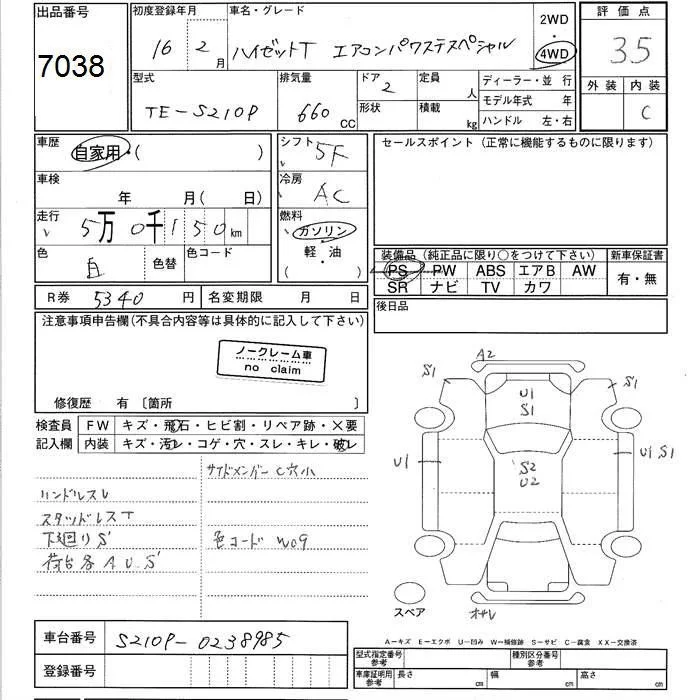 出品番号 初度登録年月 車名・グレード 2WD 評価点
7038 16 年 2 月 ハイゼットT エアコンパワステスペシャル 4WD 3.5
型式 排気量 ドア 定員 ディーラー・並行 外装 内装
TE-S210P 660 CC 2 人 モデル年式 年 C
形状 積載 kg ハンドル 左・右
車歴 自家用・( ) シフト 5F セールスポイント (正常に機能するものに限ります)
車検 年 月(日) 冷房 AC
走行 5万0千150km 燃料 ガソリン
軽・油
( )
色 白 色替 色コード 装備品 (純正品に限り○をつけて下さい) 新車保証書
PS PW ABS エアB AW 有・無
SR ナビ TV カワ
R券 5340 円 名変期限 月 日 後日品
注意事項申告欄(不具合内容等は具体的に記入して下さい)
ノークレーム車
no claim
修復歴 有 〔箇所 〕
検査員 FW キズ・飛石・ヒビ割・リペア跡・×要
記入欄 内装 キズ・汚レ・コゲ・穴・スレ・キレ・破レ
サイドメンバーC穴小
ハンドルスレ
スタッドレスT
下廻りS
色コード W09
荷台各AUS
A2
S1 S1
U1
S1
U1 U1 S1
S2
U2
スペア
オサレ
A-キズ E-エクボ U-凹み W-補修跡 S-サビ C-腐食 XX-交換済
車台番号 S210P-0238985
登録番号
型式指定番号 参考 種別区分番号 参考
車庫証明用 参考 長さ cm 幅 cm 高さ cm